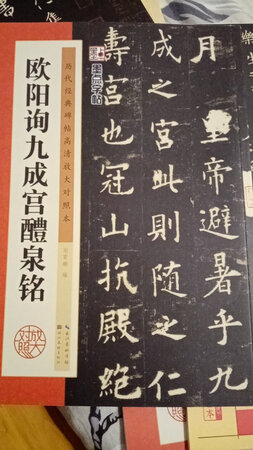 历代经典碑帖高清放大对照本
欧阳询九成宫醴泉铭
放大
对照
墨点字帖
月 皇帝避暑乎九
成之宫此则随之仁
寿宫也冠山抗殿绝